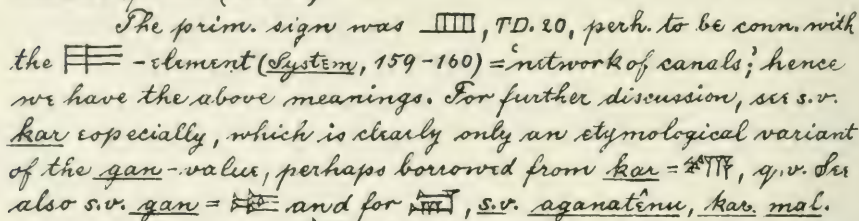 The prim. sign was , TD. 20, perh. to be conn. with
the -element (System, 159-160) = 'network of canals;' hence
we have the above meanings. For further discussion, see s.v.
kar especially, which is clearly only an etymological variant
of the gan-value, perhaps borrowed from kar = , q.v. See
also s.v. gan = and for , s.v. aganatênu, kar, mal.